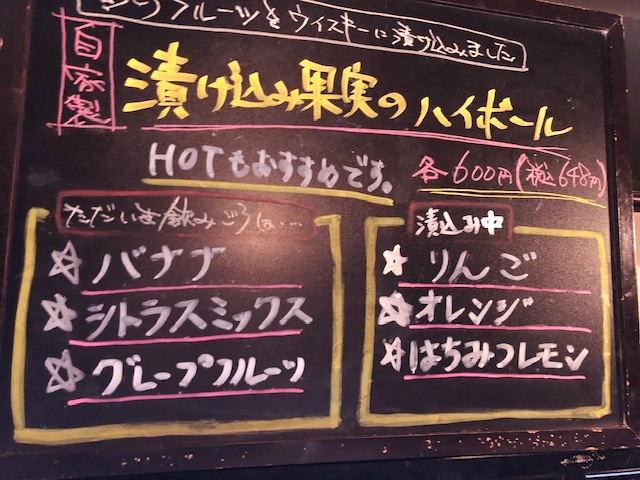 フルーツをウイスキーに漬け込みました
自家製
漬け込み果実のハイボール
HOTもおすすめです。
各600円(税込648円)
ただいま飲みごろは、…
☆バナナ
☆シトラスミックス
☆グレープフルーツ
漬込み中
☆りんご
☆オレンジ
☆はちみつレモン